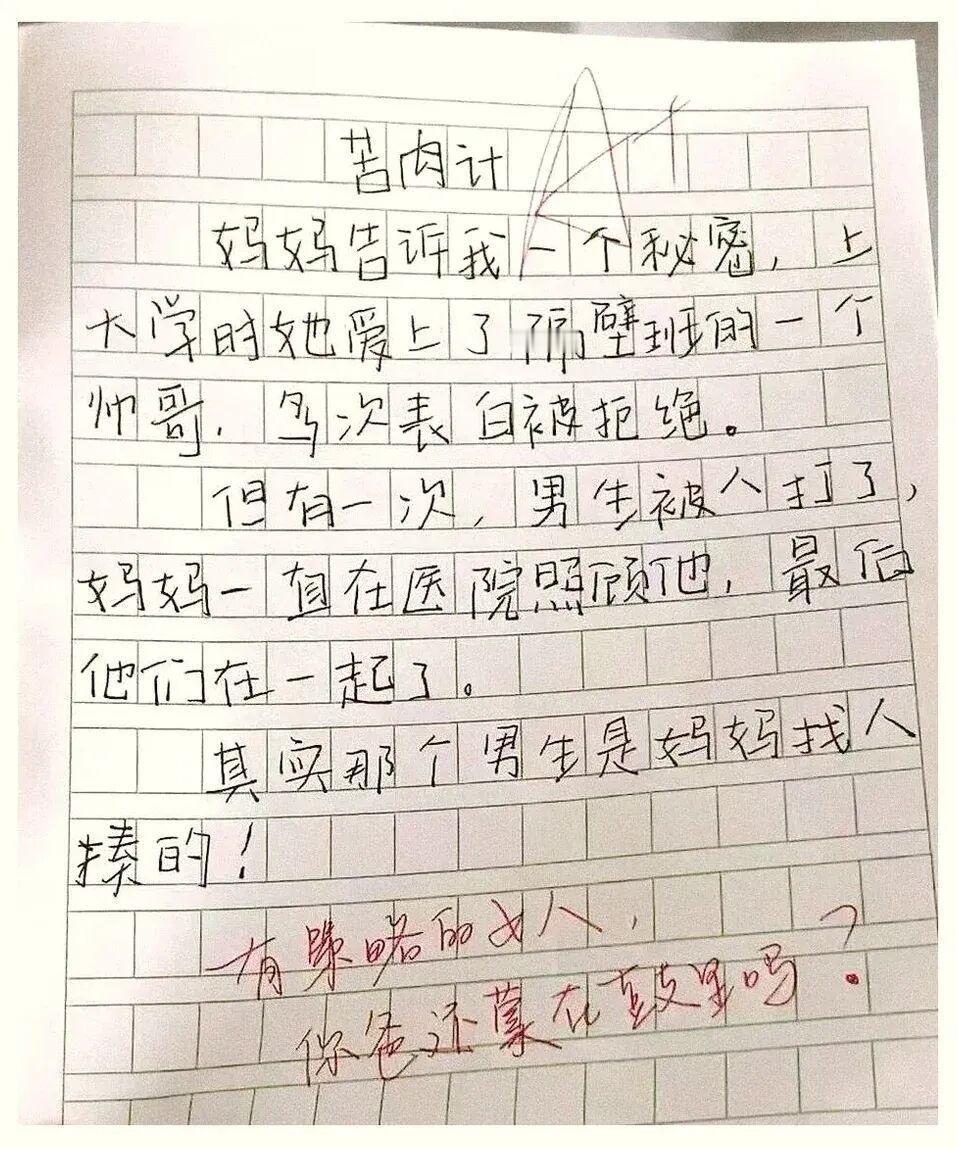 苦肉计
A+
妈妈告诉我一个秘密，上
大学时她爱上了隔壁班的一个
帅哥，多次表白被拒绝。
但有一次，男生被人打了，
妈妈一直在医院照顾他，最后
他们在一起了。
其实那个男生是妈妈找人
揍的！
有策略的女人，
你爸还蒙在鼓里吗？